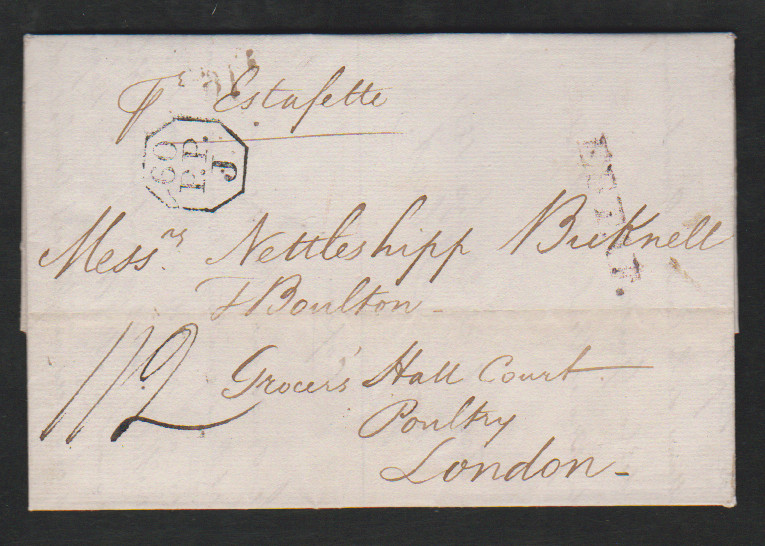 pr Estafette
60
P.P.
J.
Messrs Nettleshipp Bicknell
& Boulton
1/2 Grocers' Hall Court
Poultry
London